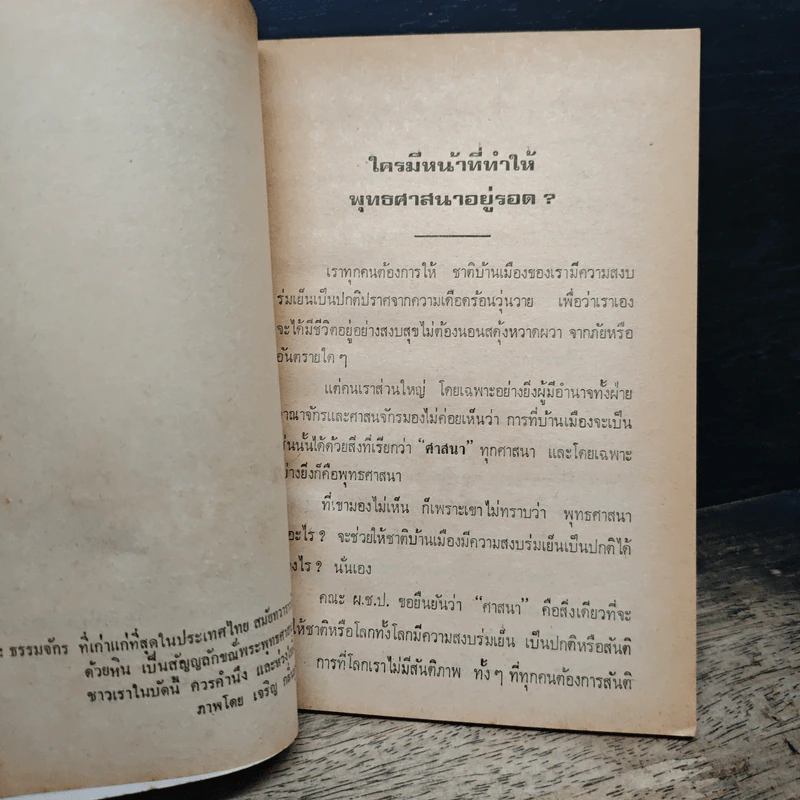 ธรรมจักร ที่เก่าแก่ที่สุดในประเทศไทย
ด้วยหิน เป็นสัญญลักษณ์
ชาวเราในบัดนี้ ควรคำนึง
ภาพโดย เจริญ
ใครมีหน้าที่ทำให้
พุทธศาสนาอยู่รอด ?
เราทุกคนต้องการให้ ชาติบ้านเมืองของเรามีความสงบ
ร่มเย็นเป็นปกติปราศจากความเดือดร้อนวุ่นวาย เพื่อว่าเราเอง
จะได้มีชีวิตอยู่อย่างสงบสุขไม่ต้องนอนสดุ้งหวาดผวา จากภัยหรือ
อันตรายใด ๆ
แต่คนเราส่วนใหญ่ โดยเฉพาะอย่างยิ่งผู้มีอำนาจทั้งฝ่าย
อาณาจักรและศาสนจักรมองไม่ค่อยเห็นว่า การที่บ้านเมืองจะเป็น
เช่นนั้นได้ด้วยสิ่งที่เรียกว่า “ศาสนา” ทุกศาสนา และโดยเฉพาะ
อย่างยิ่งก็คือพุทธศาสนา
ที่เขามองไม่เห็น ก็เพราะเขาไม่ทราบว่า พุทธศาสนา
อะไร ? จะช่วยให้ชาติบ้านเมืองมีความสงบร่มเย็นเป็นปกติได้
นั่นเอง
คณะ ผ.ช.ป. ขอยืนยันว่า “ศาสนา” คือสิ่งเดียวที่จะ
ให้ชาติหรือโลกทั้งโลกมีความสงบร่มเย็น เป็นปกติหรือสันติ
การที่โลกเราไม่มีสันติภาพ ทั้ง ๆ ที่ทุกคนต้องการสันติ